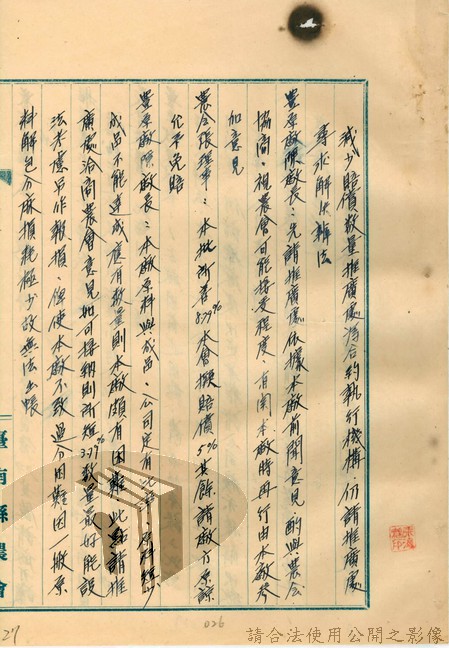 減少賠償數量推廣處為合約執行機構,仍請推廣處
尋求解決辦法
豐原廠陳廠長:先請推廣處依據本廠前開意見,酌與農會
協商,視農會可能接受程度,有關本廠時再行由本廠參
加意見
農會張理事:本批所差8.79%本會擬賠償5%其餘請廠方原諒
允予免賠
豐原廠陳廠長:本廠原料與成品,公司定有比率,原料
成品不能達成應有數量則本廠頗有困難此點請推
廣處洽商農會意見如可接納則所短3.79%數量最好能設
法考慮另作報損,俾使本廠不致過分困難因一般原
料解包分麻損耗極少故無法出帳
臺南縣農會
27
026
請合法使用公開之影像